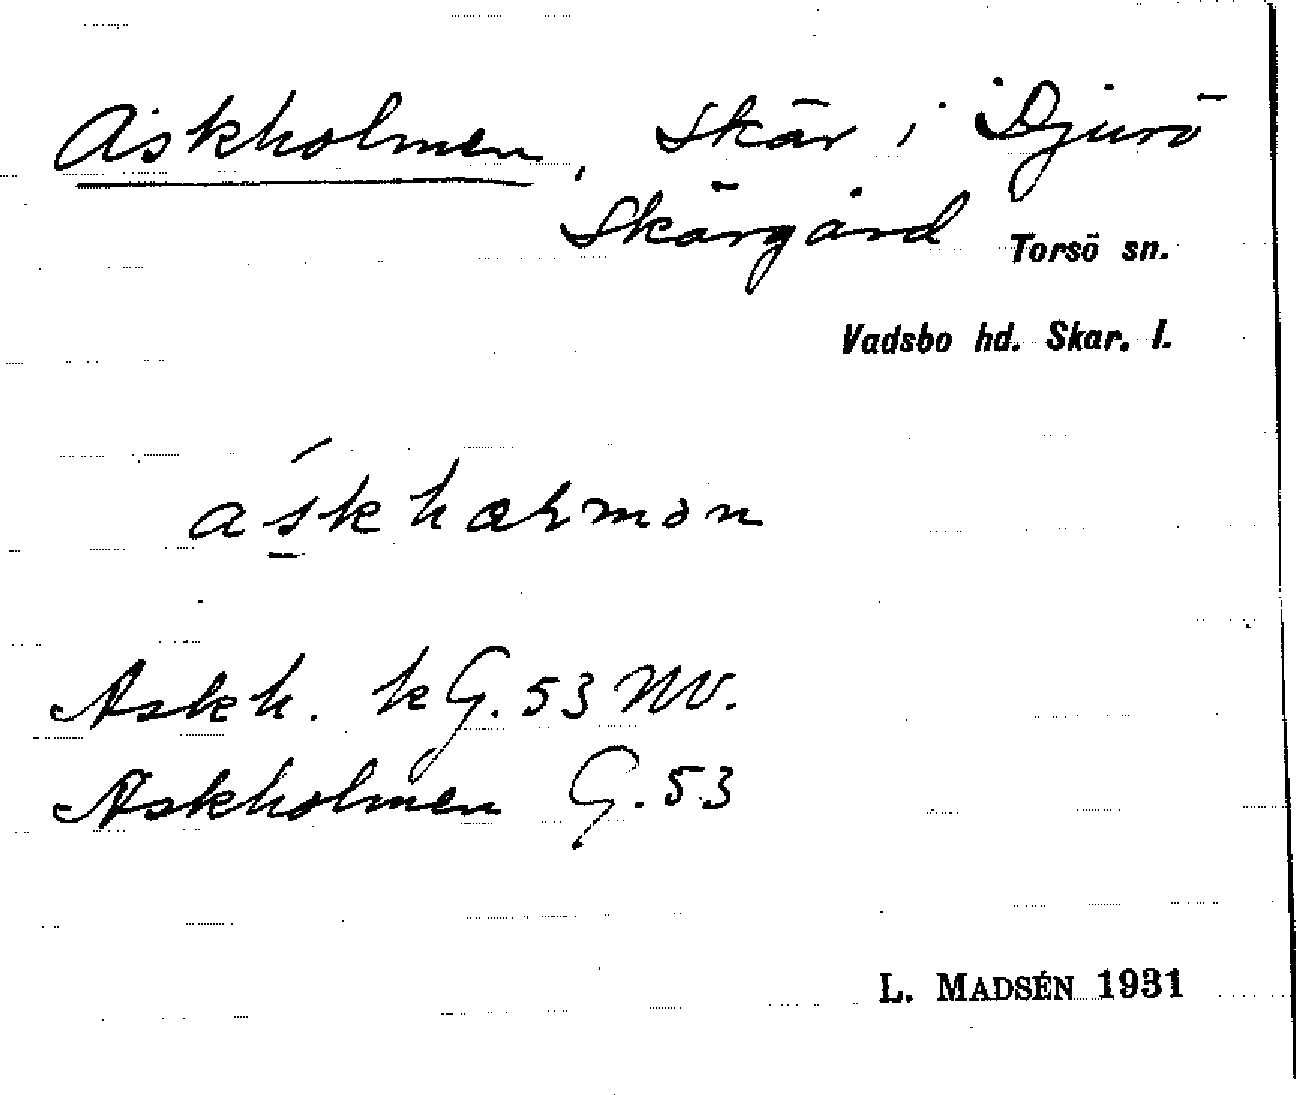 Askholmen, Skär i Djurö
Skärgård Torsö sn.
Vadsbo hd. Skar. l.
Askh. kG. 53 NV.
Askholmen G. 53
L. MADSÉN 1931